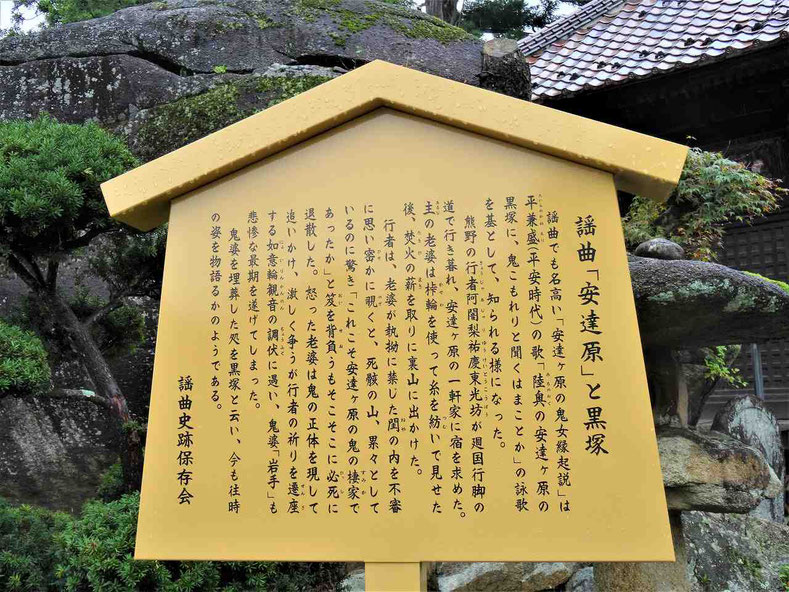 謡曲「安達原」と黒塚
謡曲でも名高い「安達ヶ原の鬼女縁起説」は
平兼盛（平安時代）の歌「陸奥の安達ヶ原の
黒塚に、鬼こもれりと聞くはまことか」の詠歌
を基として、知られる様になった。
熊野の行者阿闍梨祐慶東光坊が廻国行脚の
道で行き暮れ、安達ヶ原の一軒家に宿を求めた。
主の老婆は桛輪を使って糸を紡いで見せた
後、焚火の薪を取りに裏山に出かけた。
行者は、老婆が執拗に禁じた閨の内を不審
に思い密かに覗くと、死骸の山、累々として
いるのに驚き「これこそ安達ヶ原の鬼の棲家で
あったか」と笈を背負うもそこそこに必死に
退散した。怒った老婆は鬼の正体を現して
追いかけ、激しく争うが行者の祈りを遷座
する如意輪観音の調伏に遇い、鬼婆「岩手」も
悲惨な最期を遂げてしまった。
鬼婆を埋葬した処を黒塚と云い、今も往時
の姿を物語るかのようである。
謡曲史跡保存会